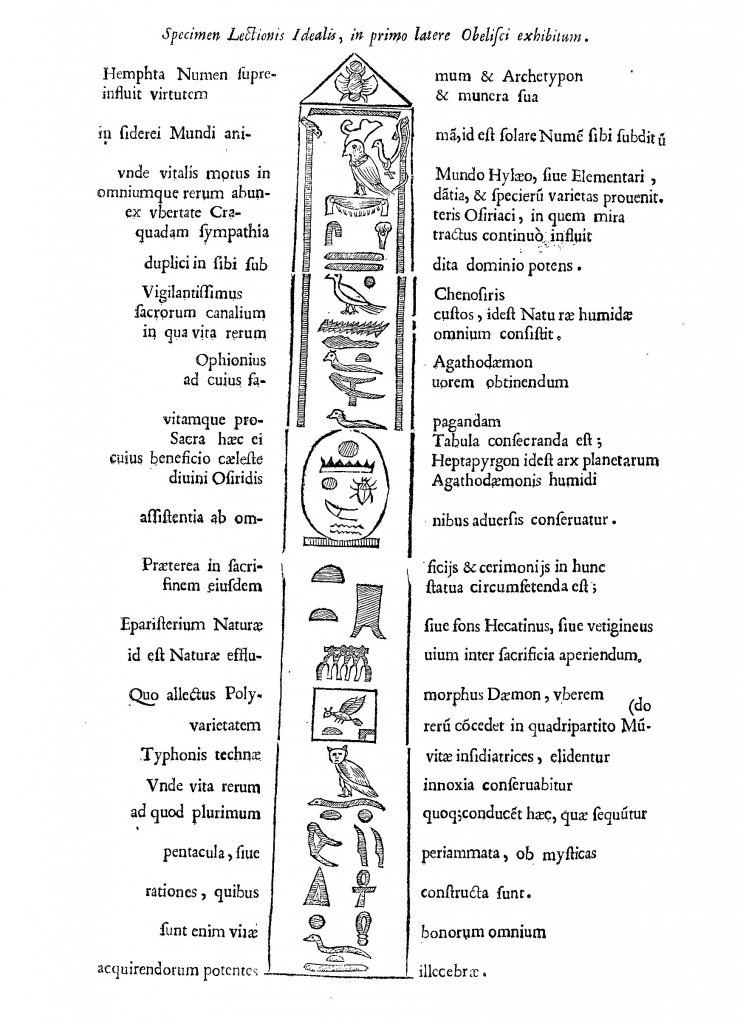 Specimen Lectionis Idealis, in primo latere Obeliſci exhibitum.
Hemphta Numen ſupre- mum & Archetypon
influit virtutem & munera ſua
in ſiderei Mundi ani- mã, id eſt ſolarẹ Numẽ ſibi ſubditũ
vnde vitalis motus in Mundo Hylæo, ſiue Elementari,
omniumque rerum abun- dãtia, & ſpecierũ varietas prouenit.
ex vbertate Cra- teris Oſiriaci, in quem mira
quadam ſympathia tractus continuò influit
duplici in ſibi ſub dita dominio potens.
Vigilantiſſimus Chenoſiris
ſacrorum canalium cuſtos, ideſt Naturæ humidæ
in qua vita rerum omnium conſiſtit.
Ophionius Agathodæmon
ad cuius fa- uorem obtinendum
vitamque pro- pagandam
Sacra hæc ei Tabula conſecranda eſt;
cuius beneficio cæleſte Heptapyrgon ideſt arx planetarum
diuini Oſiridis Agathodæmonis humidi
aſſiſtentia ab om- nibus aduerſis conſeruatur.
Præterea in ſacri- ficijs & cerimonijs in hunc
finem eiuſdem ſtatua circumfetenda eſt;
Epariſterium Naturæ ſiue fons Hecatinus, ſiue vetigineus
id eſt Naturæ efflu- uium inter ſacrificia aperiendum.
Quo allectus Poly- morphus Dæmon, vberem (do
varietatem rerũ cõcedet in quadripartito Mũ-
Typhonis technæ vitæ inſidiatrices, elidentur
Vnde vita rerum innoxia conſeruabitur
ad quod plurimum quoq; conducẽt hæc, quæ ſequũtur
pentacula, ſiue periammata, ob myſticas
rationes, quibus conſtructa ſunt.
ſunt enim vitæ bonorum omnium
acquirendorum potentes illecebræ.